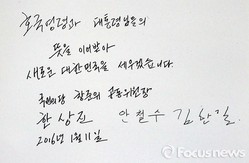 호국영령과 대통령님들의
뜻을 이어받아
새로운 대한민국을 세우겠습니다
국민의당 창준위 공동위원장
한상진 안철수 김한길
2016년 1월 11일
Focusnews